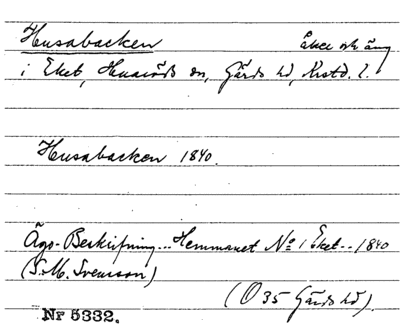 Husabacken åker och äng
i Eket, Huaröds sn, Gärds hd, Krstd. l.
Husabacken 1840.
Ägo-Beskrifning... Hemmanet No 1 Eket... 1840
(S.M. Svensson)
(O 35 Gärds hd).
Nr 5332.